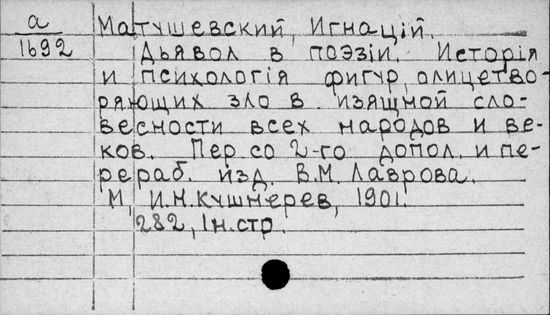 а
1692
Матушевский, Игнацій.
Дьявол в поэзіи. Исторія
и психологія фигур, олицетво-
ряющих зло в изящной сло-
весности всех народов и ве-
ков. Пер. со 2-го допол. и пе-
рераб. изд. В.М. Лаврова.
М, И.Н. Кушнерев, 1901.
282, 1н. стр.